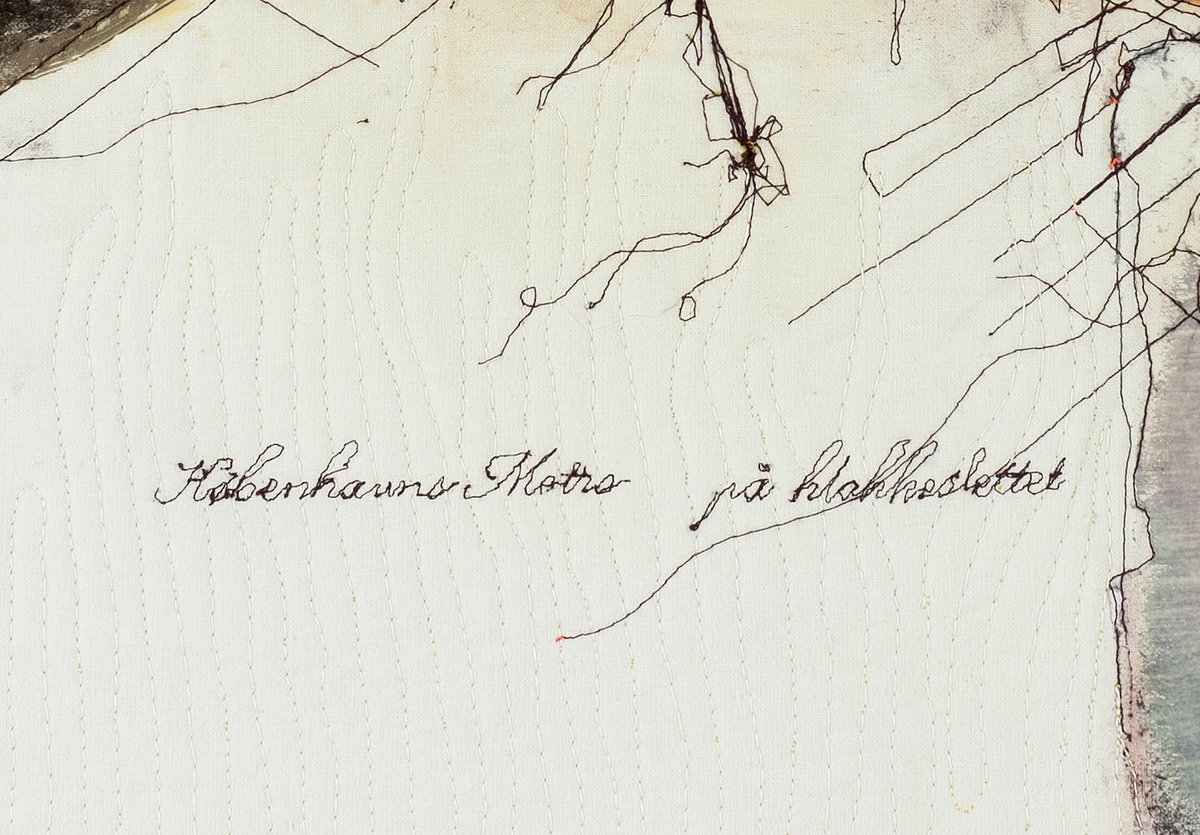 Københavns Metro på klokkeslettet